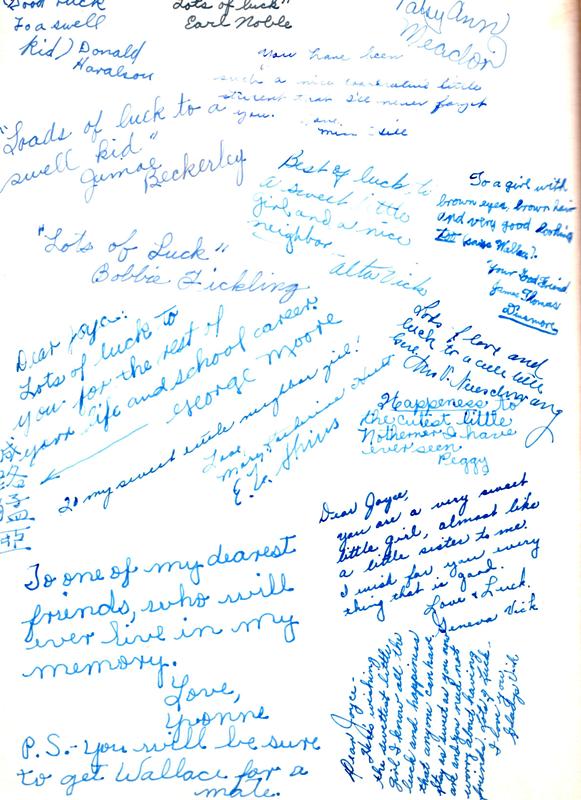 Good luck
To a swell
kid) Donald
Haralson
Lots of luck"
Earl Noble
Patsy Ann
Meador
You have been
such a nice little
student that I'll never forget
you. Love,
Miss
"Loads of luck to a
swell kid"
Beckerley
Best of luck to
a sweet little
girl and a nice
neighbor
Alta Vick
To a girl with
brown eyes, brown hair
and very good looking
says Wallace?
"Your Good Friend
James Thomas
Dinsmore
"Lots of Luck"
Bobbie Fickling
Dear Joyce:
Lots of luck to
you for the rest of
your life and school career.
George Moore
Lots of love and
luck to a cute little
Happeness to
the cutest little
I have
ever seen
Peggy
To my sweet little neighbor girl!
Love,
Mary Katherine
E. L. Shins
Dear Joyce,
you are a very sweet
little girl, almost like
a little sister to me.
I wish for you every
thing that is good.
Love & Luck.
Geneva Vick
To one of my dearest
friends, who will
ever live in my
memory.
Love,
Yvonne
P.S.- You will be sure
to get Wallace for a
mate.
Dear Joyce.
Here's wishing
the sweetest little
girl I know all the
luck and happiness
that anyone can have
Stay as sweet as you are
and you need not
worry about having
friends. Lots of luck.
I love you,
Gladys Vick